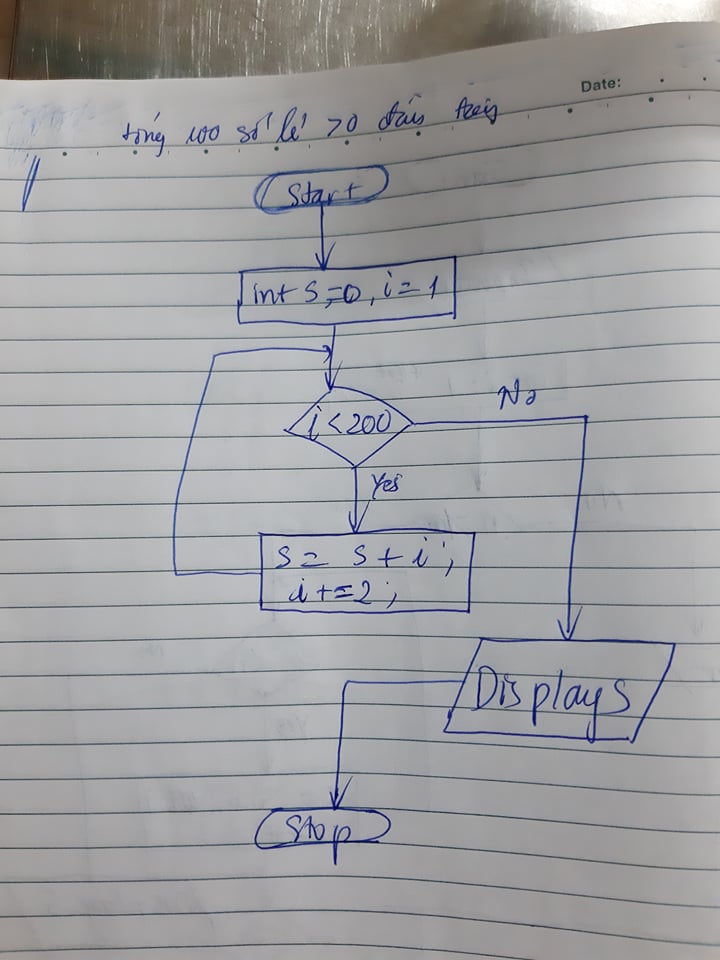 Date:
tổng 100 số lẻ >0 đầu tiên
Start
int S=0, i=1
i<200
No
Yes
S = S + i;
i+=2;
Display S
Stop